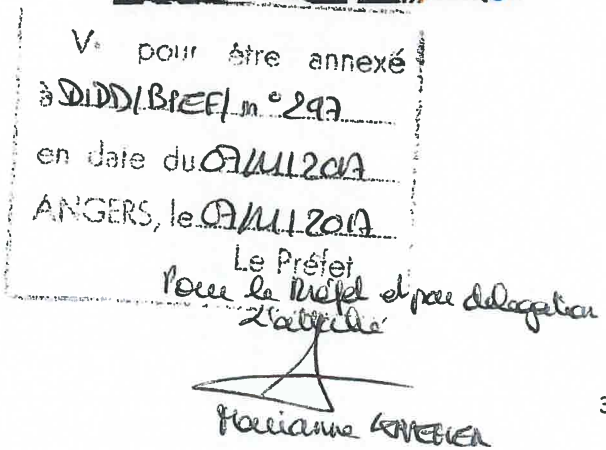 Vu pour être annexé
à DIDD/BPEF/ n° 297
en date du 07/11/2017
ANGERS, le 07/11/2017
Le Préfet
Pour le Préfet et par délégation
L'attaché
Marianne
3